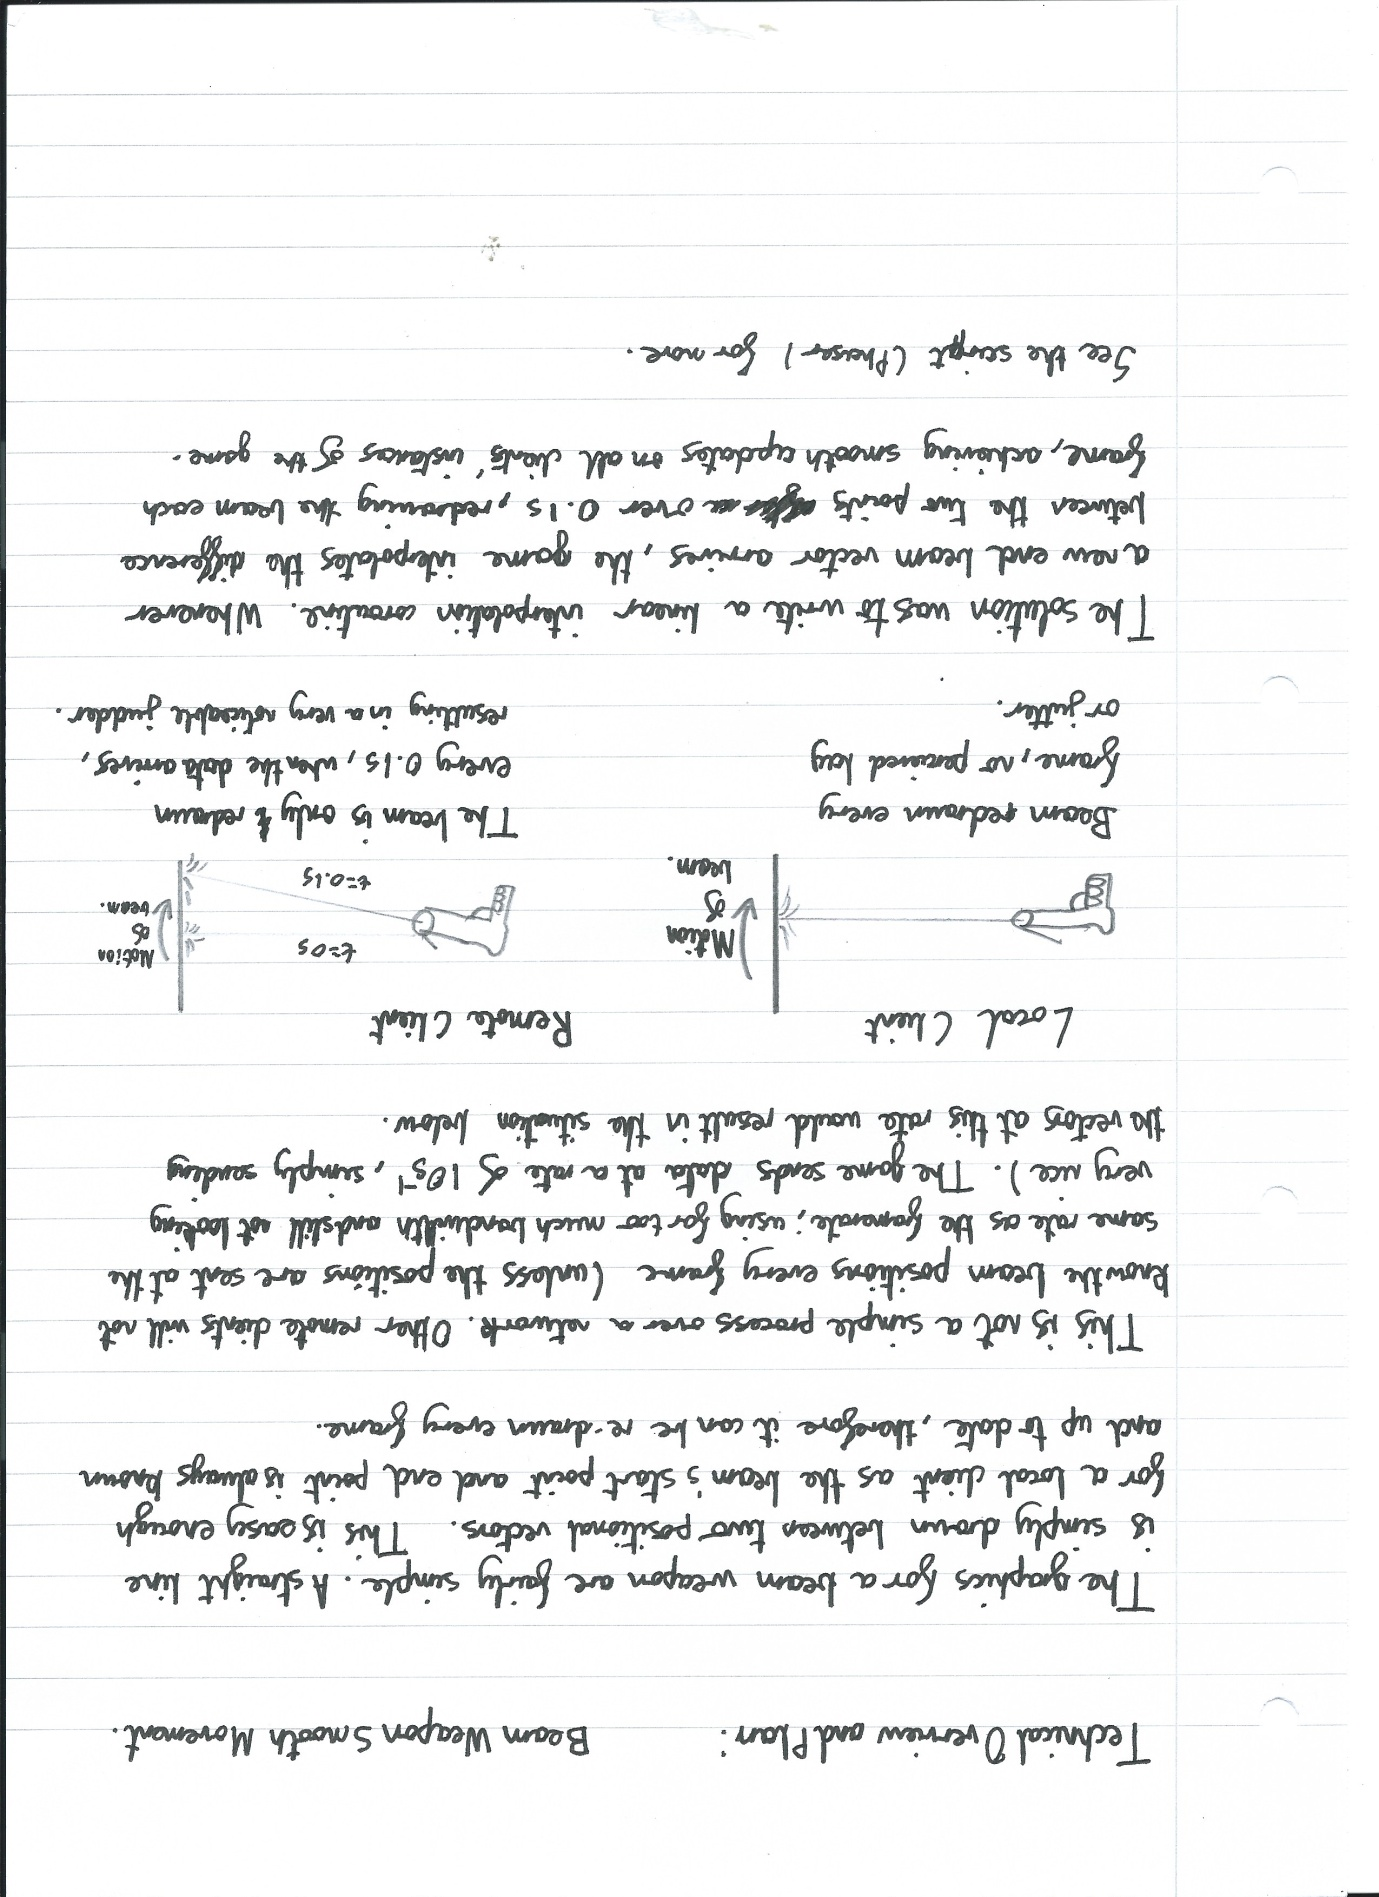 Technical Overview and Plan: Beam Weapon Smooth Movement.
The graphics for a beam weapon are fairly simple. A straight line
is simply drawn between two positional vectors. This is easy enough
for a local client as the beam's start point and end point is always known
and up to date, therefore it can be re-drawn every frame.
This is not a simple process over a network. Other remote clients will not
know the beam positions every frame (unless the positions are sent at the
same rate as the framerate; using far too much bandwidth and still not looking
very nice). The game sends data at a rate of 10s⁻¹, simply sending
the vectors at this rate would result in the situation below.
Local Client
Motion
of
beam.
Beam redrawn every
frame, no perceived lag
or jutter.
Remote Client
t=0s
t=0.1s
Motion
of
beam.
The beam is only redrawn
every 0.1s, when the data arrives,
resulting in a very noticeable judder.
The solution was to write a linear interpolation coroutine. Whenever
a new end beam vector arrives, the game interpolates the difference
between the two points over 0.1s, redrawing the beam each
frame, achieving smooth updates on all clients' instances of the game.
See the script (Phaser) for more.